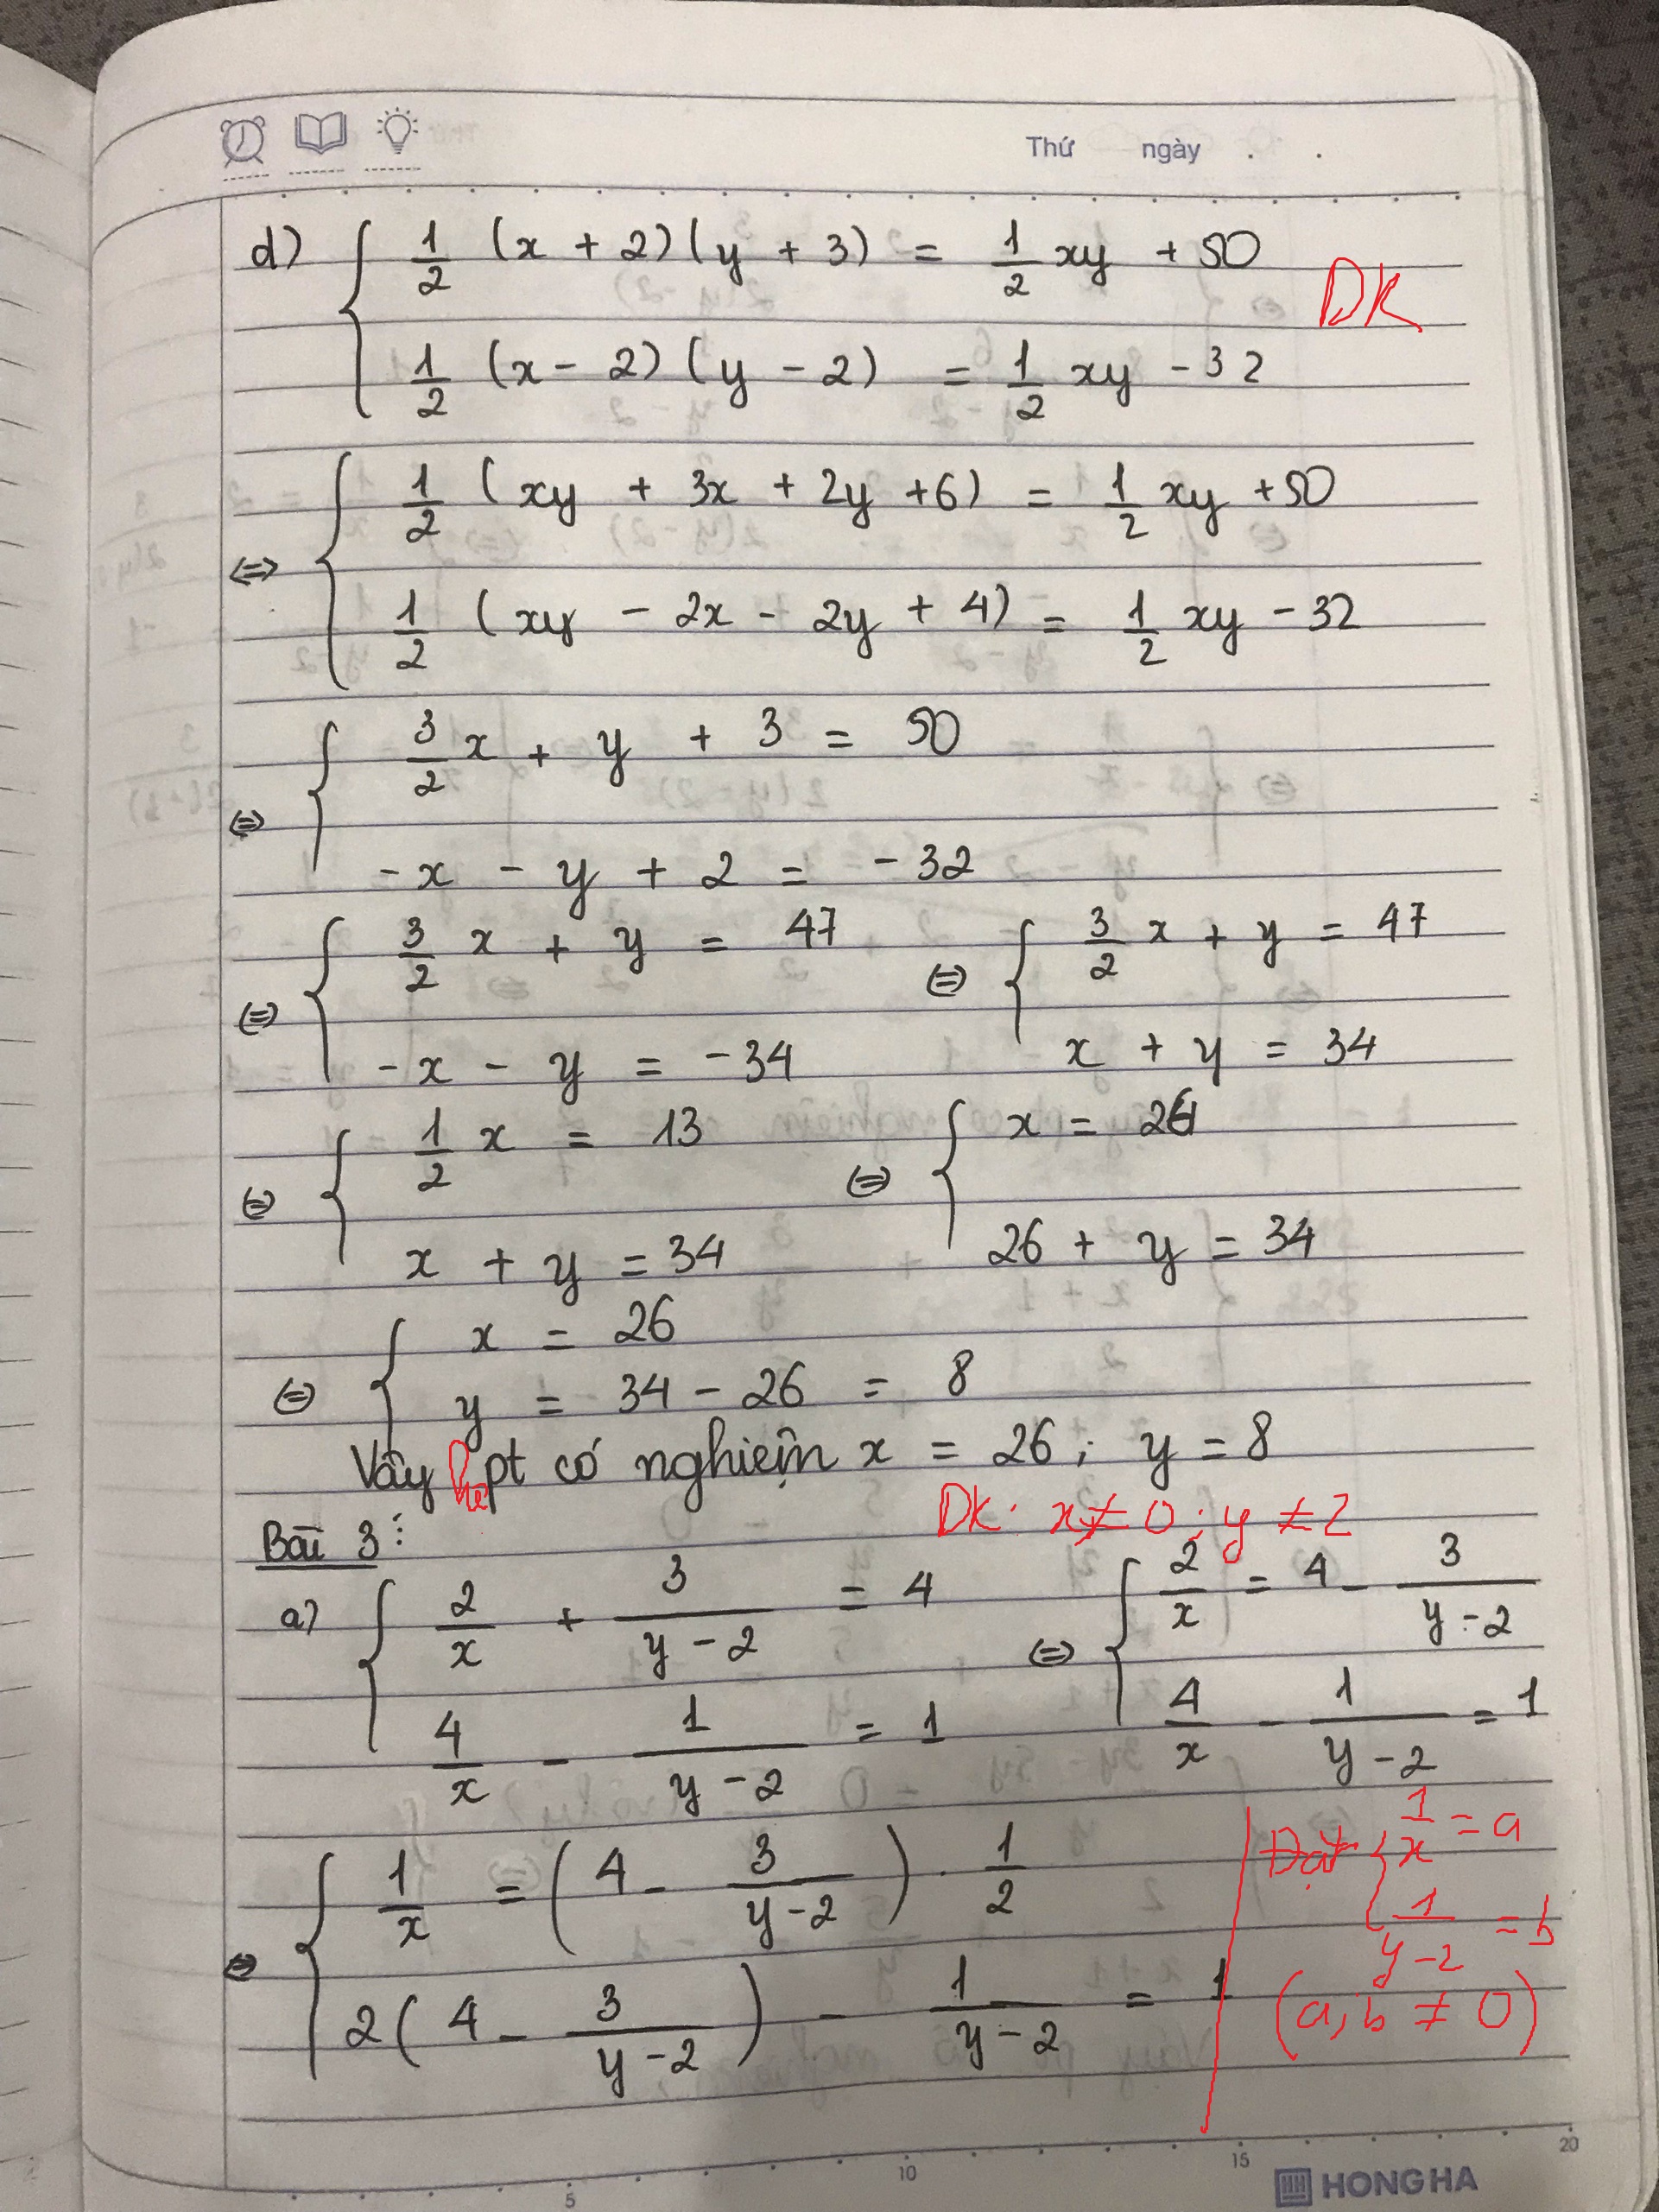 Thứ ngày . .
d) { 1/2 (x + 2)(y + 3) = 1/2 xy + 50
ĐK
1/2 (x - 2)(y - 2) = 1/2 xy - 32
⇔ { 1/2 (xy + 3x + 2y + 6) = 1/2 xy + 50
1/2 (xy - 2x - 2y + 4) = 1/2 xy - 32
⇔ { 3/2 x + y + 3 = 50
-x - y + 2 = -32
⇔ { 3/2 x + y = 47 ⇔ { 3/2 x + y = 47
-x - y = -34 x + y = 34
⇔ { 1/2 x = 13 ⇔ { x = 26
x + y = 34 26 + y = 34
⇔ { x = 26
y = 34 - 26 = 8
Vậy hệ pt có nghiệm x = 26; y = 8
ĐK: x ≠ 0; y ≠ 2
Bài 3:
a) { 2/x + 3/(y-2) = 4 ⇔ { 2/x = 4 - 3/(y-2)
4/x - 1/(y-2) = 1 4/x - 1/(y-2) = 1
⇔ { 1/x = (4 - 3/(y-2)) . 1/2
2(4 - 3/(y-2)) - 1/(y-2) = 1
Đặt { 1/x = a
1/(y-2) = b
(a; b ≠ 0)
5 10 15 20
HONG HA